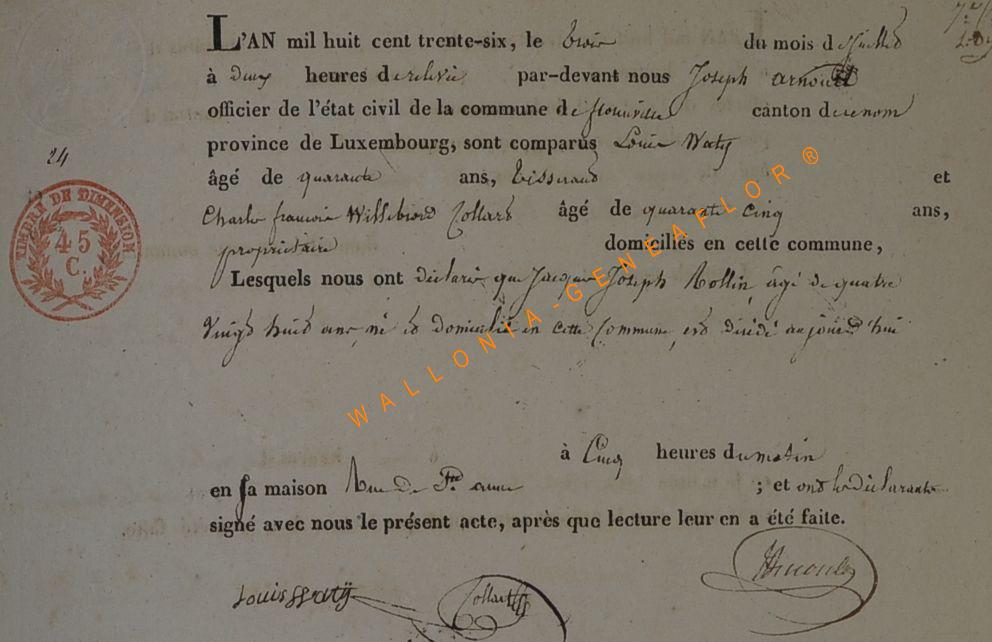 L'AN mil huit cent trente-six, le trois du mois de Juillet
à deux heures de relevée par-devant nous Joseph arnould
officier de l'état civil de la commune de florenville canton de ce nom
province de Luxembourg, sont comparus Louis Waty
24
âgé de quarante ans, tisserand et
Charles françois Willebrord Collard âgé de quarante cinq ans,
propriétaire domiciliés en cette commune,
Lesquels nous ont déclaré que Jacques Joseph Rollin, âgé de quatre
vingt huit ans, né et domicilié en cette Commune, est décédé aujourd'hui
à Cinq heures du matin
en sa maison Rue de Ste anne ; et ont les déclarants
signé avec nous le présent acte, après que lecture leur en a été faite.
Louis Waty Collard Arnould
TIMBRE DE DIMENSION
45
C.
WALLONIA-GENEAFLOR ®